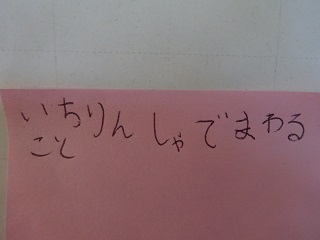 いちりんしゃでまわる
こと